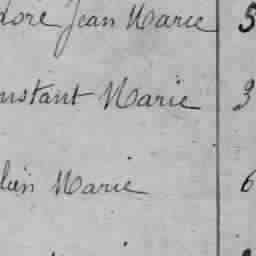 dore Jean Marie 5
nstant Marie 3
Marie 6